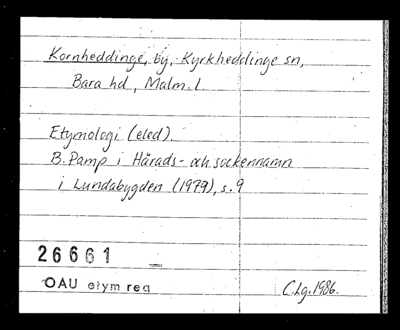 Kornheddinge, by, Kyrkheddinge sn,
Bara hd, Malm. l.
Etymologi (eled).
B. Pamp i Härads- och sockennamn
i Lundabygden (1979), s. 9
26661
OAU etym reg
C.Lg. 1986.